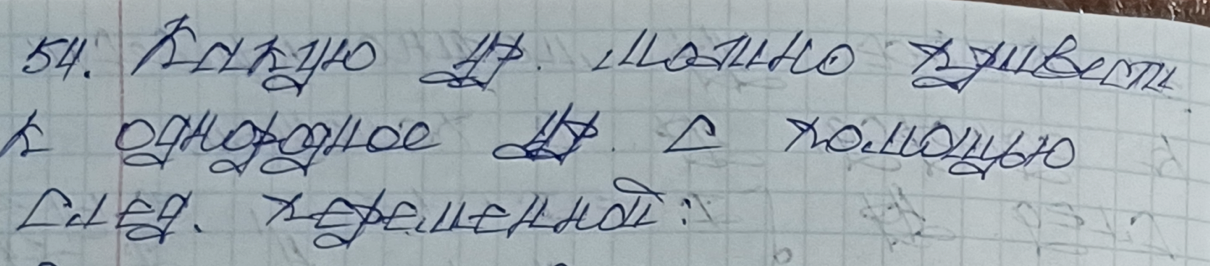 54. Какую ур. можно привести
к однородное ур. с помощью
след. переменной: